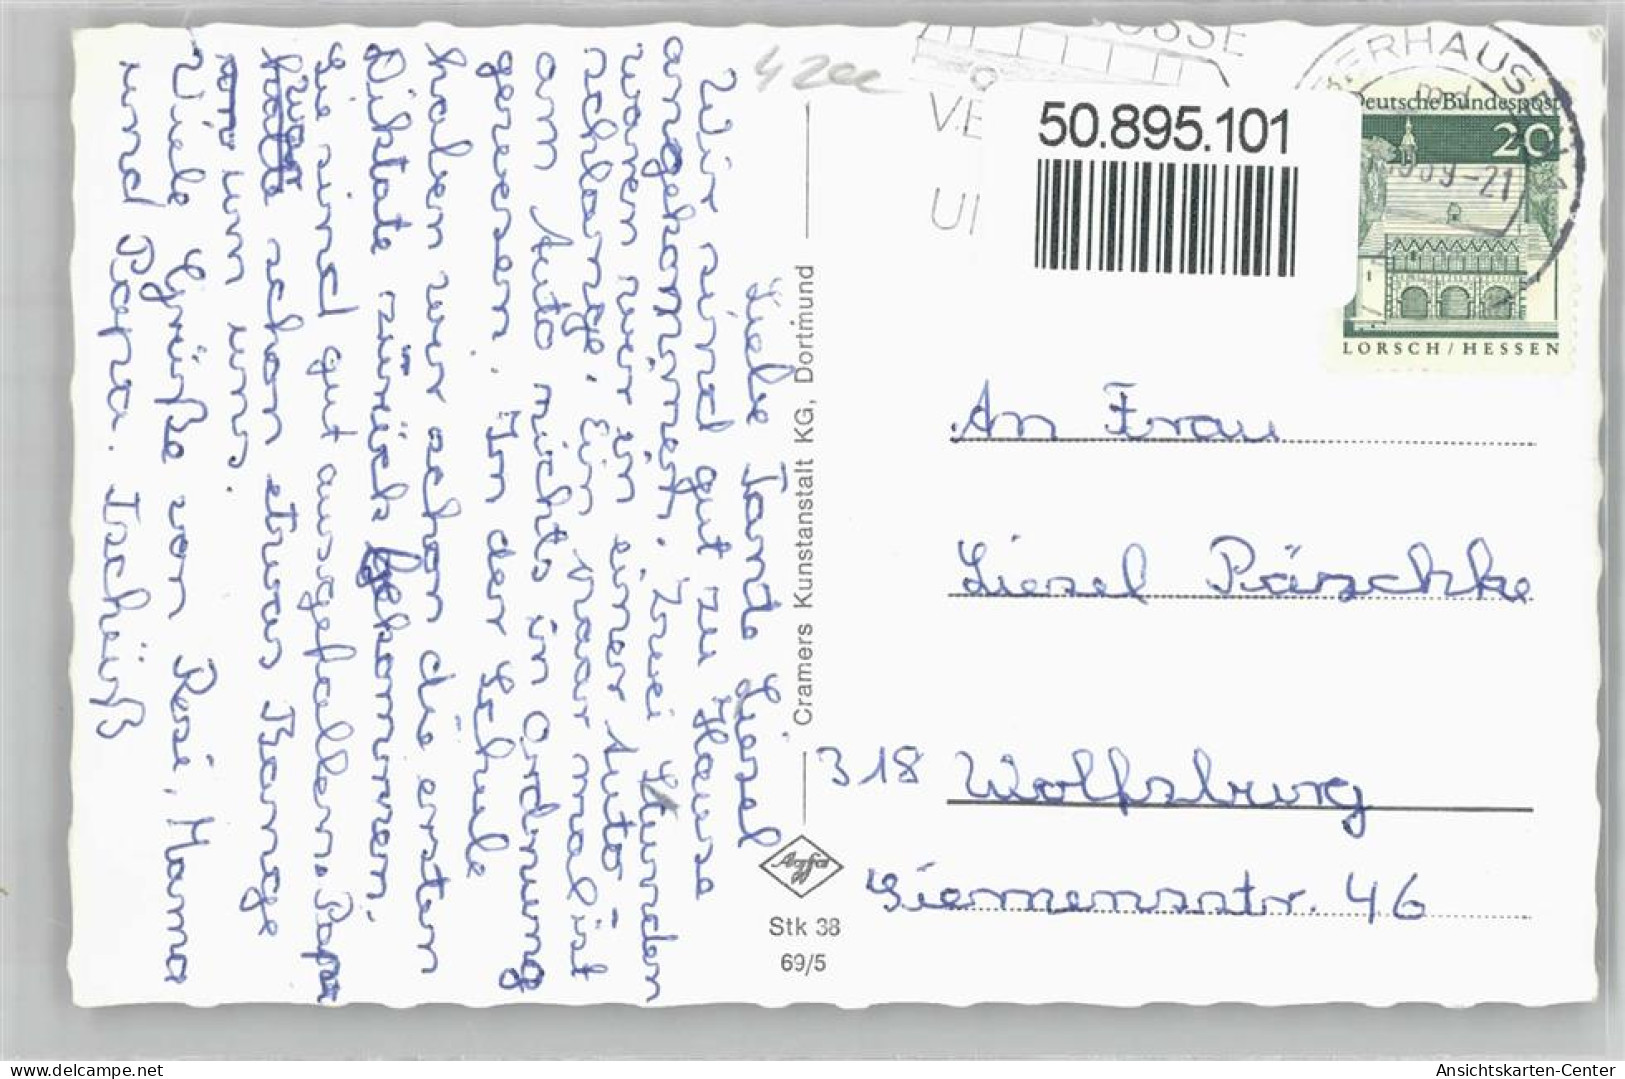 Liebe Tante Liesel
Wir sind gut zu Hause
angekommen. Zwei Stunden
waren wir in einer Auto
schlange. Ein paar mal ist
am Auto nichts in Ordnung
gewesen. In der Schule
haben wir schon die ersten
Diktate zurück bekommen.
Sie sind gut ausgefallen. Papa
hatte schon etwas Bange
um uns.
Viele Grüße von Resi, Mama
und Papa. Tschüß
42cc
Cramers Kunstanstalt KG, Dortmund
Agfa
Stk 38
69/5
50.895.101
ERHAUSEN
1969-21
Deutsche Bundespost
20
LORSCH / HESSEN
An Frau
Liesel Päschke
318 Wolfsburg
Siemensstr. 46
delcampe.net
Ansichtskarten-Center